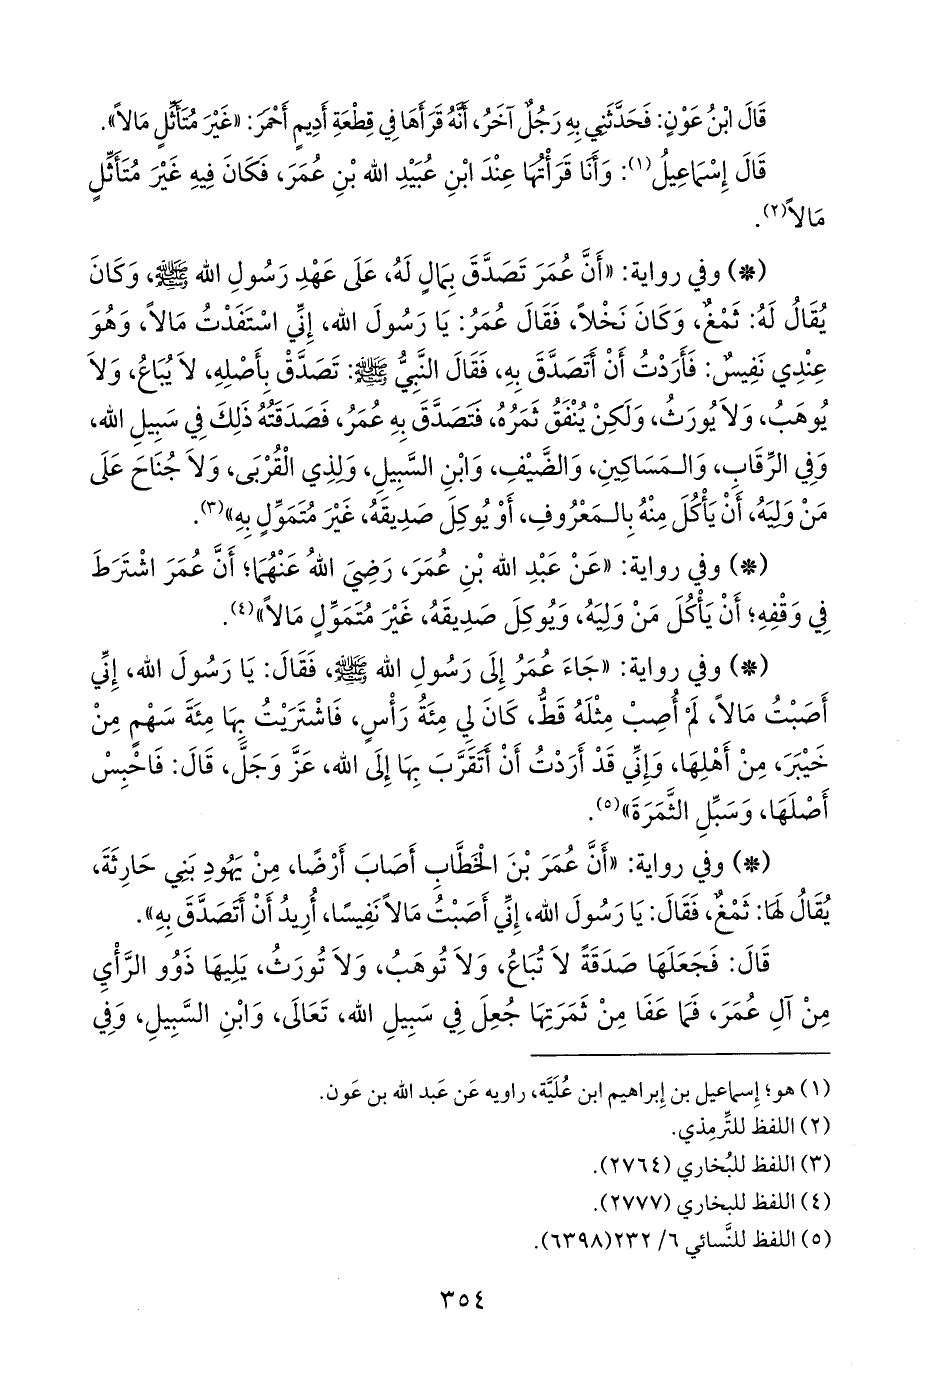 قَالَ ابْنُ عَوْنٍ: فَحَدَّثَنِي بِهِ رَجُلٌ آخَرُ، أَنَّهُ قَرَأَهَا فِي قِطْعَةِ أَدِيمٍ أَحْمَرَ: «غَيْرَ مُتَأَثِّلٍ مَالاً».
قَالَ إِسْمَاعِيلُ(١): وَأَنَا قَرَأْتُهَا عِنْدَ ابْنِ عُبَيْدِ الله بْنِ عُمَرَ، فَكَانَ فِيهِ غَيْرَ مُتَأَثِّلٍ
مَالاً(٢).
(*) وفي رواية: «أَنَّ عُمَرَ تَصَدَّقَ بِمَالٍ لَهُ، عَلَى عَهْدِ رَسُولِ الله ﷺ، وَكَانَ
يُقَالُ لَهُ: ثَمْغٌ، وَكَانَ نَخْلاً، فَقَالَ عُمَرُ: يَا رَسُولَ الله، إِنِّي اسْتَفَدْتُ مَالاً، وَهُوَ
عِنْدِي نَفِيسٌ: فَأَرَدْتُ أَنْ أَتَصَدَّقَ بِهِ، فَقَالَ النَّبِيُّ ﷺ: تَصَدَّقْ بِأَصْلِهِ، لاَ يُبَاعُ، وَلاَ
يُوهَبُ، وَلاَ يُورَثُ، وَلَكِنْ يُنْفَقُ ثَمَرُهُ، فَتَصَدَّقَ بِهِ عُمَرُ، فَصَدَقَتُهُ ذَلِكَ فِي سَبِيلِ الله،
وَفِي الرِّقَابِ، وَالْمَسَاكِينِ، وَالضَّيْفِ، وَابْنِ السَّبِيلِ، وَلِذِي الْقُرْبَى، وَلاَ جُنَاحَ عَلَى
مَنْ وَلِيَهُ، أَنْ يَأْكُلَ مِنْهُ بِالْمَعْرُوفِ، أَوْ يُوكِلَ صَدِيقَهُ، غَيْرَ مُتَمَوِّلٍ بِهِ»(٣).
(*) وفي رواية: «عَنْ عَبْدِ الله بْنِ عُمَرَ، رَضِيَ اللهُ عَنْهُمَا؛ أَنَّ عُمَرَ اشْتَرَطَ
فِي وَقْفِهِ؛ أَنْ يَأْكُلَ مَنْ وَلِيَهُ، وَيُوكِلَ صَدِيقَهُ، غَيْرَ مُتَمَوِّلٍ مَالاً»(٤).
(*) وفي رواية: «جَاءَ عُمَرُ إِلَى رَسُولِ الله ﷺ، فَقَالَ: يَا رَسُولَ الله، إِنِّي
أَصَبْتُ مَالاً، لَمْ أُصِبْ مِثْلَهُ قَطُّ، كَانَ لِي مِئَةُ رَأْسٍ، فَاشْتَرَيْتُ بِهَا مِئَةَ سَهْمٍ مِنْ
خَيْبَرَ، مِنْ أَهْلِهَا، وَإِنِّي قَدْ أَرَدْتُ أَنْ أَتَقَرَّبَ بِهَا إِلَى الله، عَزَّ وَجَلَّ، قَالَ: فَاحْبِسْ
أَصْلَهَا، وَسَبِّلِ الثَّمَرَةَ»(٥).
(*) وفي رواية: «أَنَّ عُمَرَ بْنَ الْخَطَّابِ أَصَابَ أَرْضًا، مِنْ يَهُودِ بَنِي حَارِثَةَ،
يُقَالُ لَهَا: ثَمْغٌ، فَقَالَ: يَا رَسُولَ الله، إِنِّي أَصَبْتُ مَالاً نَفِيسًا، أُرِيدُ أَنْ أَتَصَدَّقَ بِهِ».
قَالَ: فَجَعَلَهَا صَدَقَةً لاَ تُبَاعُ، وَلاَ تُوهَبُ، وَلاَ تُورَثُ، يَلِيهَا ذَوُو الرَّأْيِ
مِنْ آلِ عُمَرَ، فَمَا عَفَا مِنْ ثَمَرَتِهَا جُعِلَ فِي سَبِيلِ الله، تَعَالَى، وَابْنِ السَّبِيلِ، وَفِي
(١) هو؛ إِسماعيل بن إِبراهيم ابن عُلَيَّة، راويه عَن عَبد الله بن عَون.
(٢) اللفظ للتِّرمِذي.
(٣) اللفظ للبُخاري (٢٧٦٤).
(٤) اللفظ للبخاري (٢٧٧٧).
(٥) اللفظ للنَّسائي ٦/ ٢٣٢(٦٣٩٨).
٣٥٤